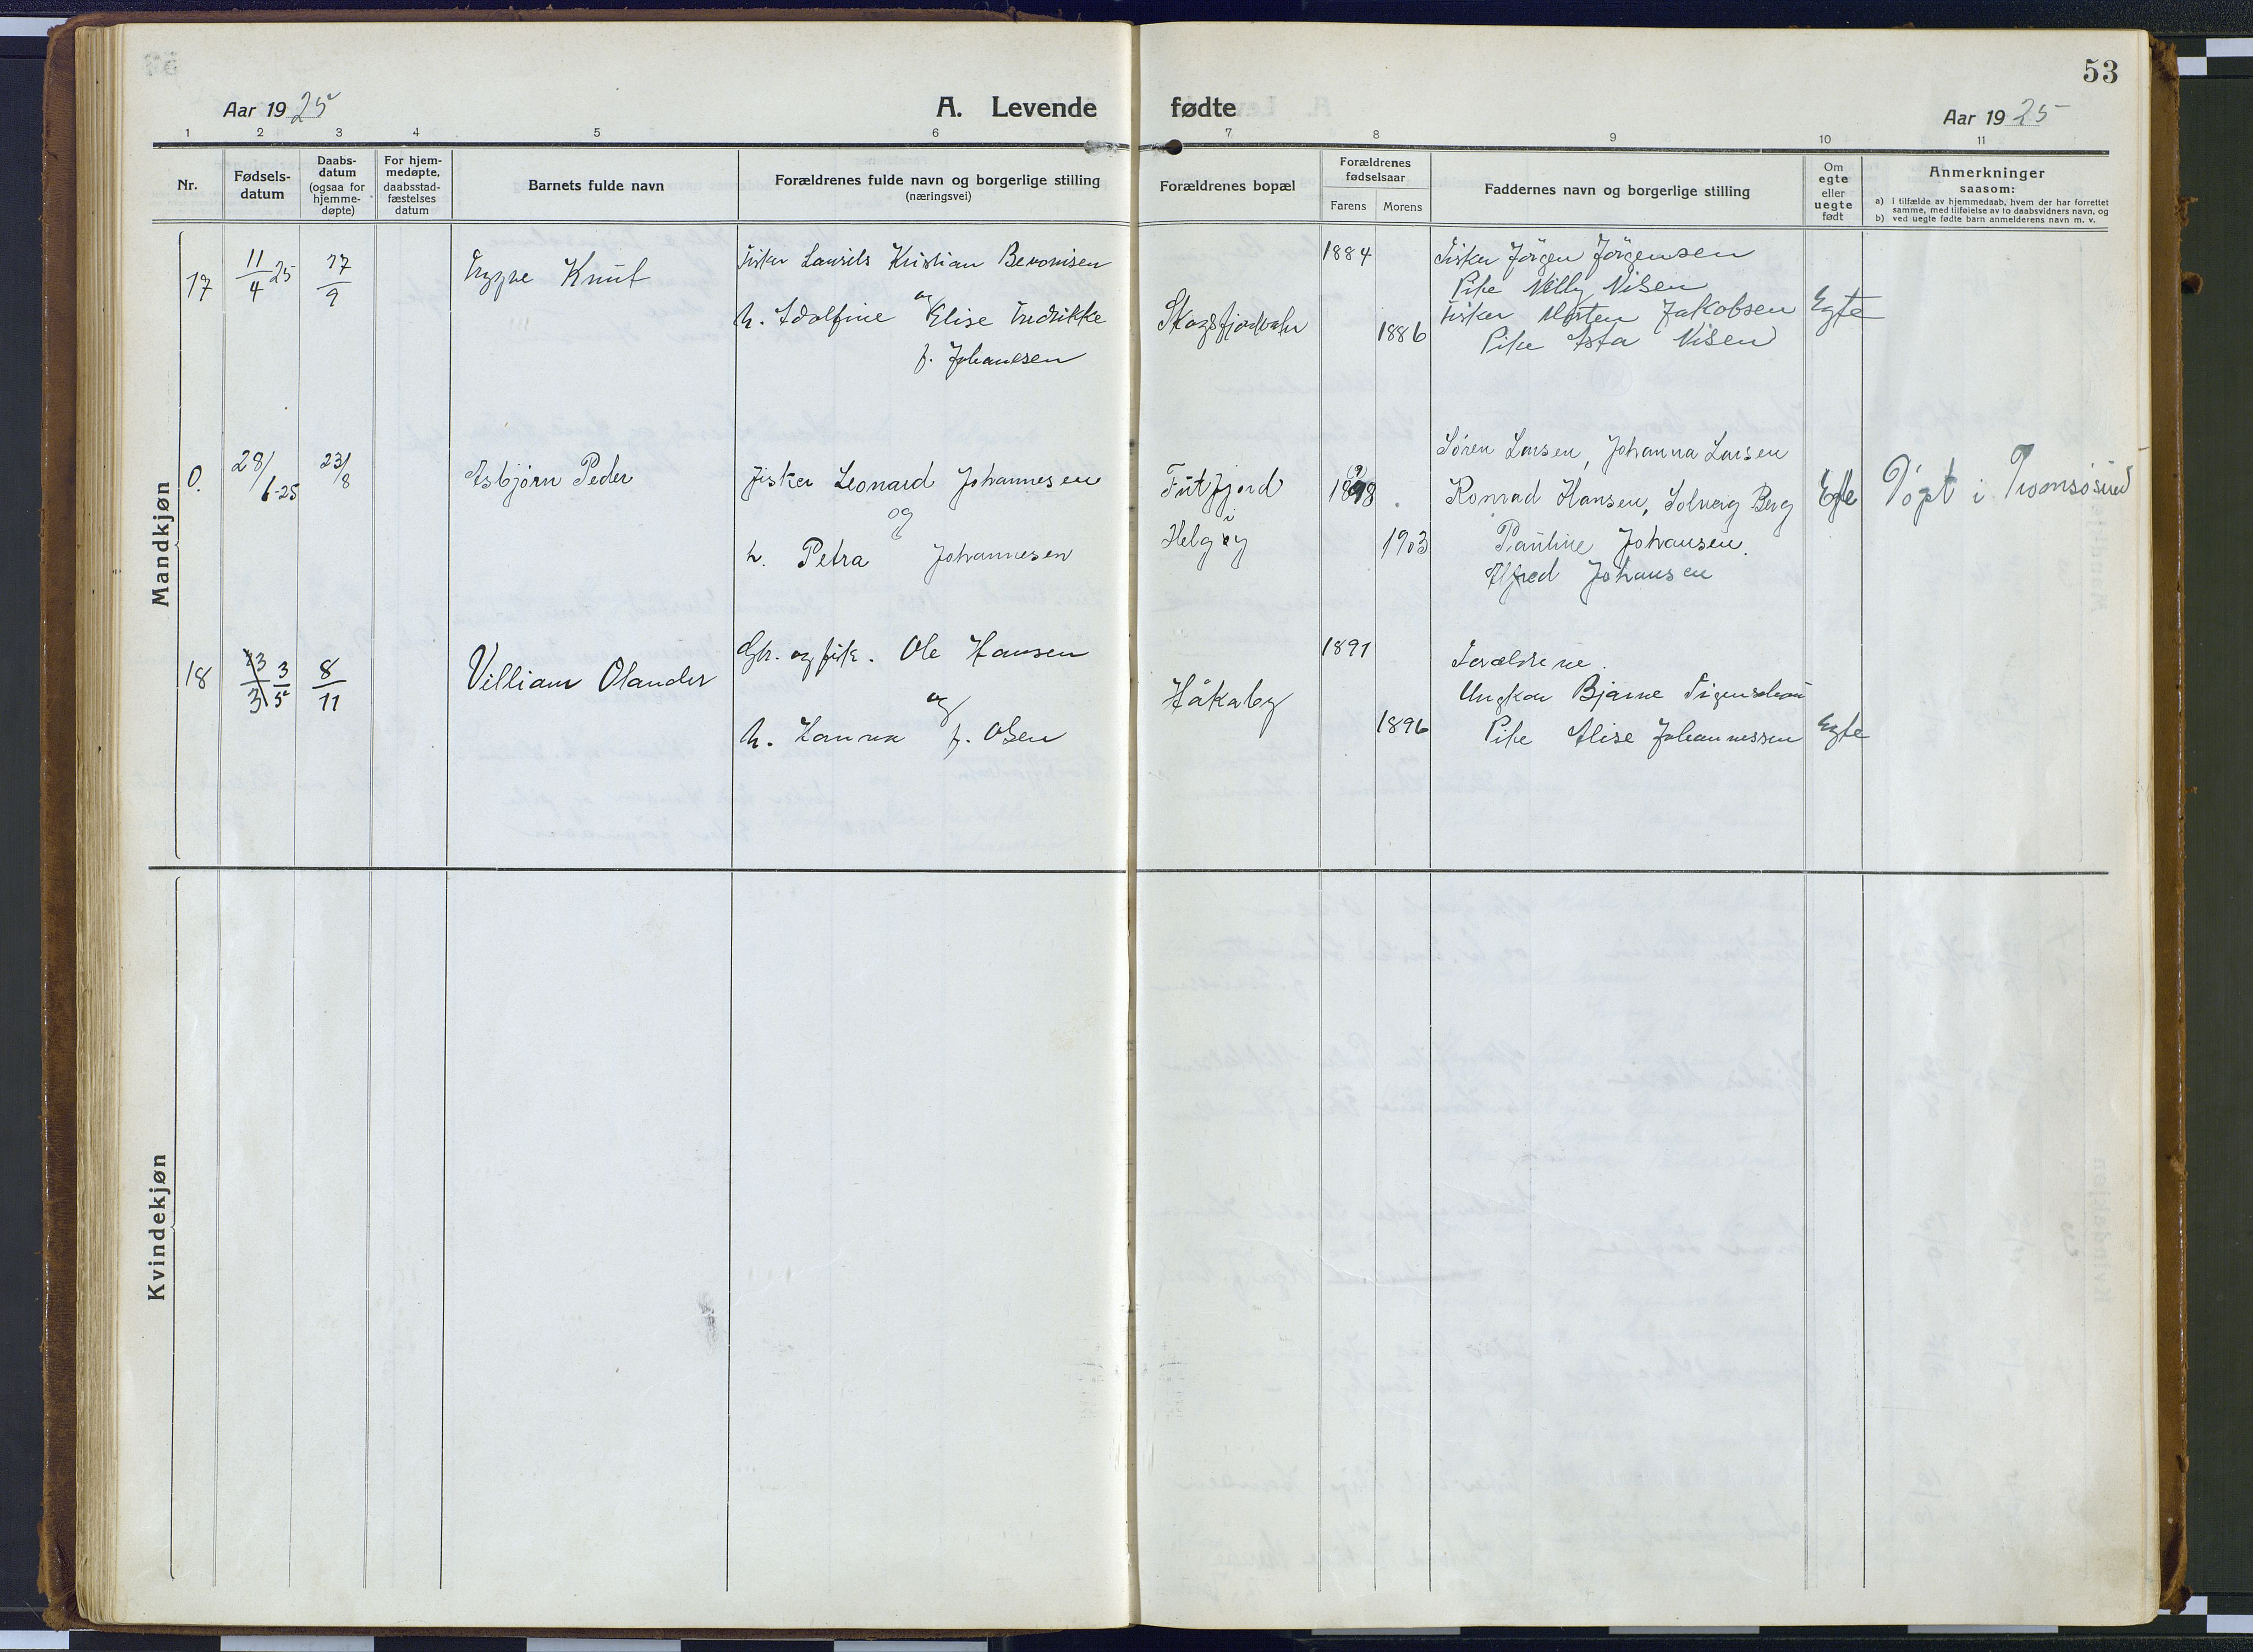 53
Aar 1925
A. Levende fødte
Aar 1925
1 2 3 4 5 6 7 8 9 10 11
Nr.
Fødsels-
datum
Daabs-
datum
(ogsaa for
hjemme-
døpte)
For hjem-
medøpte,
daabsstad-
fæstelses
datum
Barnets fulde navn
Forældrenes fulde navn og borgerlige stilling
(næringsvei)
Forældrenes bopæl
Forældrenes
fødselsaar
Farens Morens
Faddernes navn og borgerlige stilling
Om
egte
eller
uegte
født
Anmerkninger
saasom:
a) i tilfælde av hjemmedaab, hvem der har forrettet
samme, med tilføielse av to daabsvidners navn, og
b) ved uegte fødte barn anmelderens navn m. v.
Mandkjøn
17
11/4 25
17/9
Trygve Knut
Fisker Laurits Kristian
og
h. Adolfine Elise Fredrikke
f. Johansen
1884
1886
Fisker Jörgen Jörgensen
Pike Nelly Nilsen
Fisker Jakobsen
Pike Asta Nilsen
Egte
0.
28/6-25
23/8
Asbjörn Peder
Fisker Leonard Johannesen
og
h. Petra Johannesen
Futfjord
i
Helgøy
1898
1903
Søren Larsen, Johanna Larsen
Konrad Hansen, Solveig Berg
Pauline Johansen.
Alfred Johansen
Egte
Døpt i Tromsøsund
18
23/3 3/5
8/11
Villiam Olander
Gbr. og fisk. Ole Hansen
og
h. Hanna f. Olsen
Håkaby
1891
1896
Forældrene.
Ungkar Bjarne
Pike Elise Johannessen
Egte
Kvindekjøn